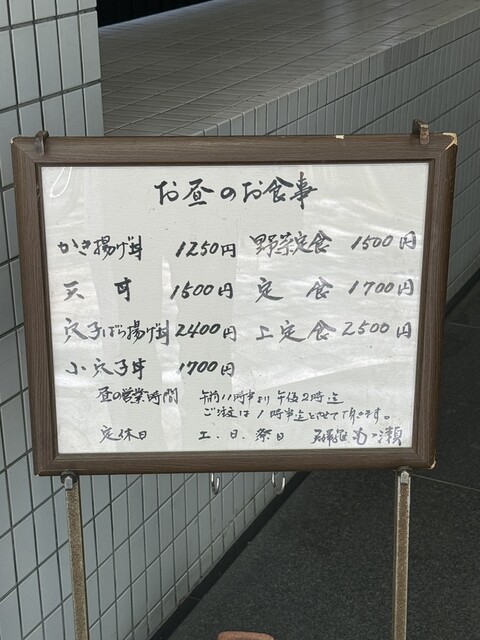 お昼のお食事
かき揚げ丼 1250円 野菜定食 1500円
天丼 1500円 定食 1700円
穴子ばら揚げ丼 2400円 上定食 2500円
小穴子丼 1700円
昼の営業時間 午前11時半より午后2時迄
ご注文は1時半迄とさせて頂きます。
定休日 土.日.祭日